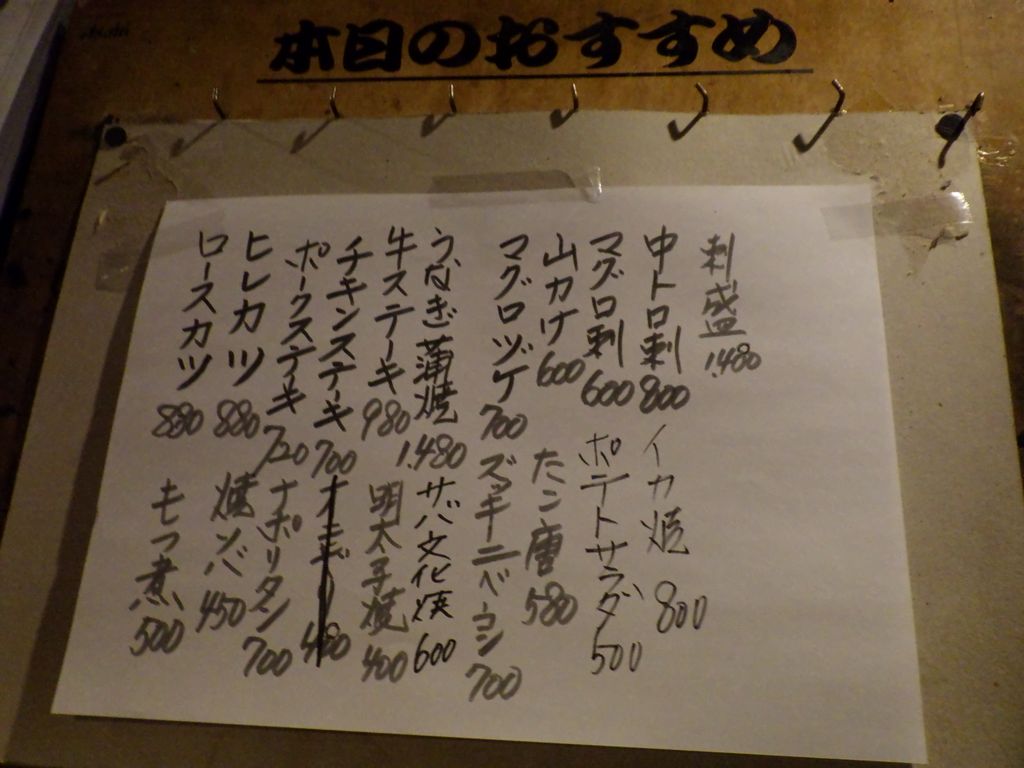 Asahi
本日のおすすめ
刺盛 1.480
中トロ刺 800
マグロ刺 600
山カけ 600
マグロヅケ 700
うなぎ蒲焼 1.480
牛ステーキ 980
チキンステーキ 700
ポークステーキ 720
ヒレカツ 880
ロースカツ 880
イカ焼 800
ポテトサラダ 500
たン唐 580
ズッキーニベーコン 700
サバ文化焼 600
明太子焼 400
480
ナポリタン 700
焼ソバ 450
モツ煮 500